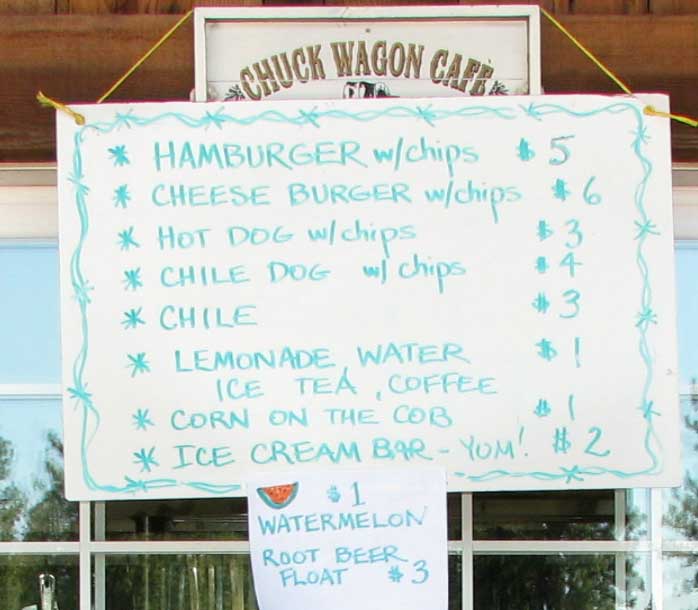 CHUCK WAGON CAFÉ
* HAMBURGER w/chips $5
* CHEESE BURGER w/chips $6
* HOT DOG w/chips $3
* CHILE DOG w/chips $4
* CHILE $3
* LEMONADE, WATER $1
ICE TEA, COFFEE
* CORN ON THE COB $1
* ICE CREAM BAR - YUM! $2
$1
WATERMELON
ROOT BEER
FLOAT $3